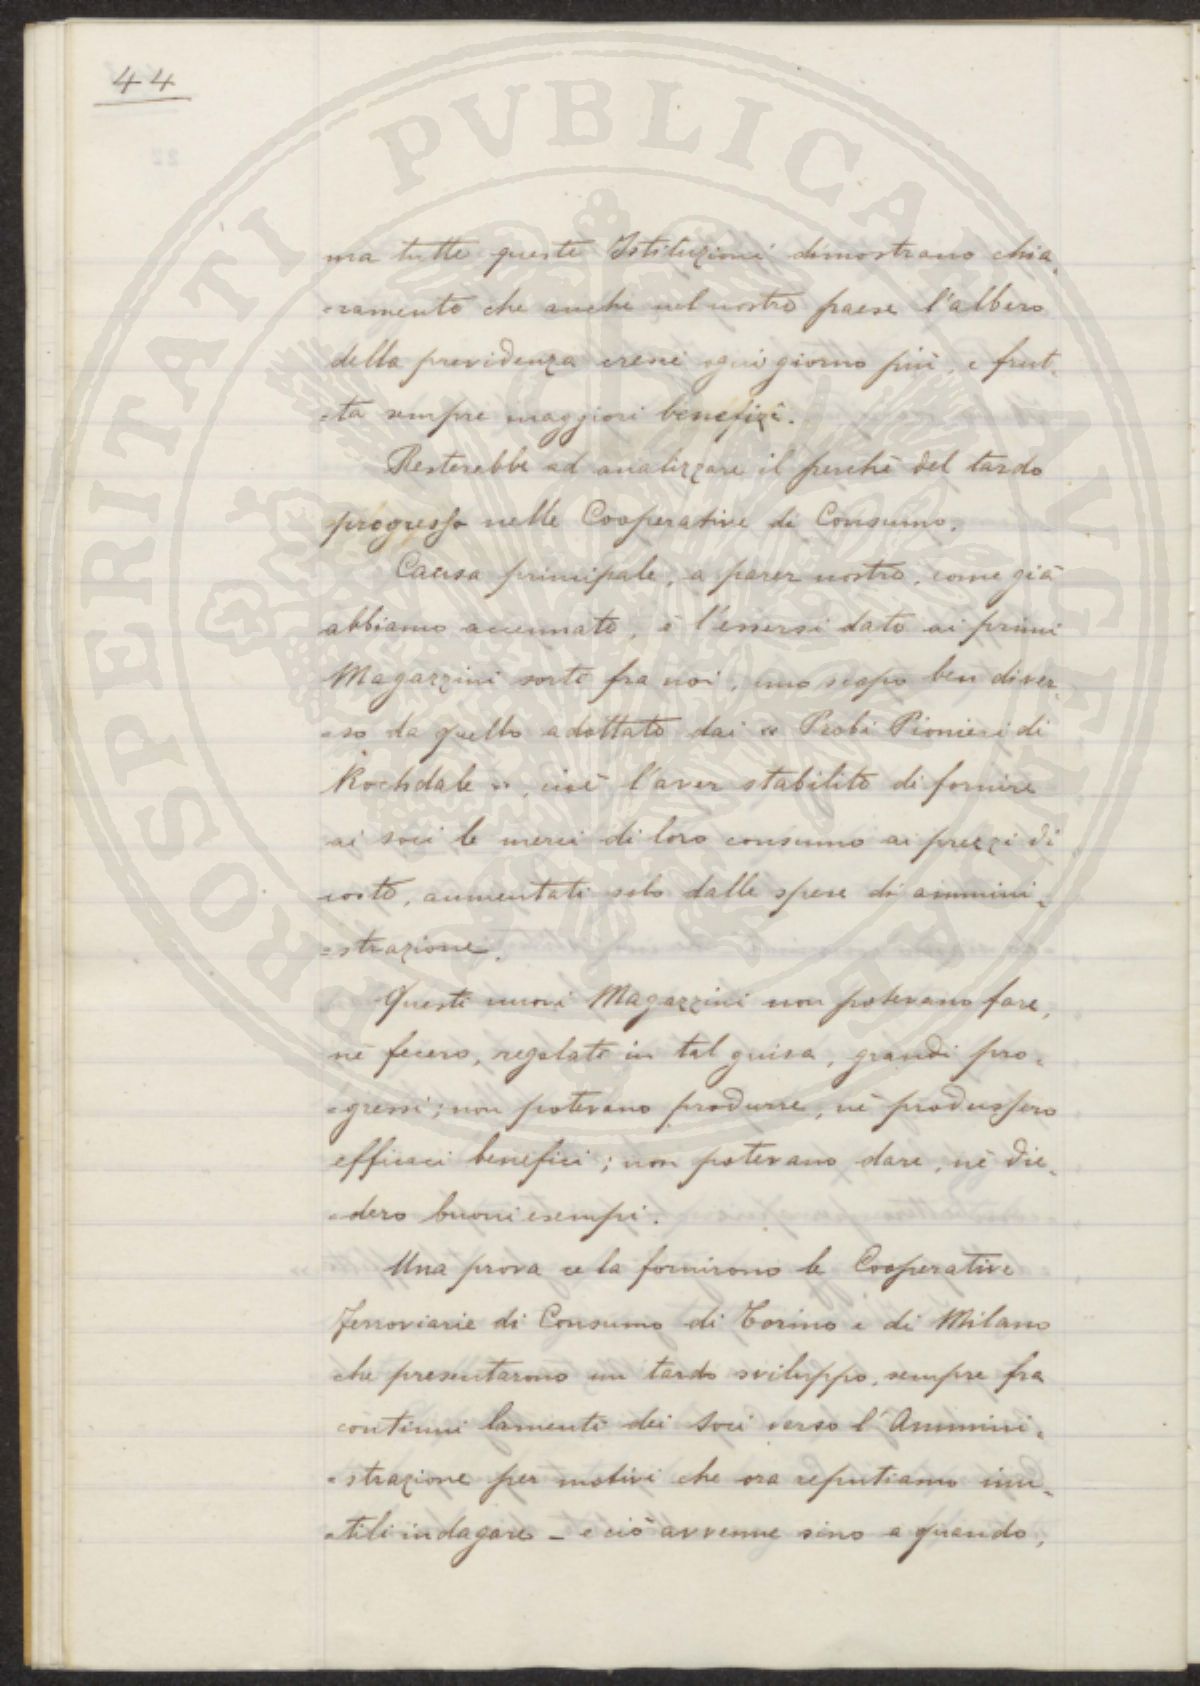 44
ma tutte queste Istituzioni dimostrano chia-
-ramente che anche nel nostro paese l'albero
della previdenza cresce ogni giorno più, e frut-
-ta sempre maggiori benefizî.
Resterebbe ad analizzare il perchè del tardo
progresso nelle Cooperative di Consumo.
Causa principale, a parer nostro, come già
abbiamo accennato, è l'essersi dato ai primi
Magazzini sorti fra noi, uno scopo ben diver-
-so da quello adottato dai « Probi Pionieri di
Rochdale », cioè l'aver stabilito di fornire
ai soci le merci di loro consumo ai prezzi di
costo, aumentati solo dalle spese di ammini-
=strazione.
Questi nuovi Magazzini non potevano fare,
nè fecero, regolati in tal guisa, grandi pro-
-gressi; non potevano produrre, nè produssero
efficaci benefici; non potevano dare, nè die-
-dero buoni esempi.
Una prova ce la fornirono le Cooperative
Ferroviarie di Consumo di Torino e di Milano
che presentarono un tardo sviluppo, sempre fra
continui lamenti dei Soci verso l'Ammini-
-strazione per motivi che ora reputiamo inu-
-tili indagare - e ciò avvenne sino a quando,
PROSPERITATI PVBLICAE AVGENDAE